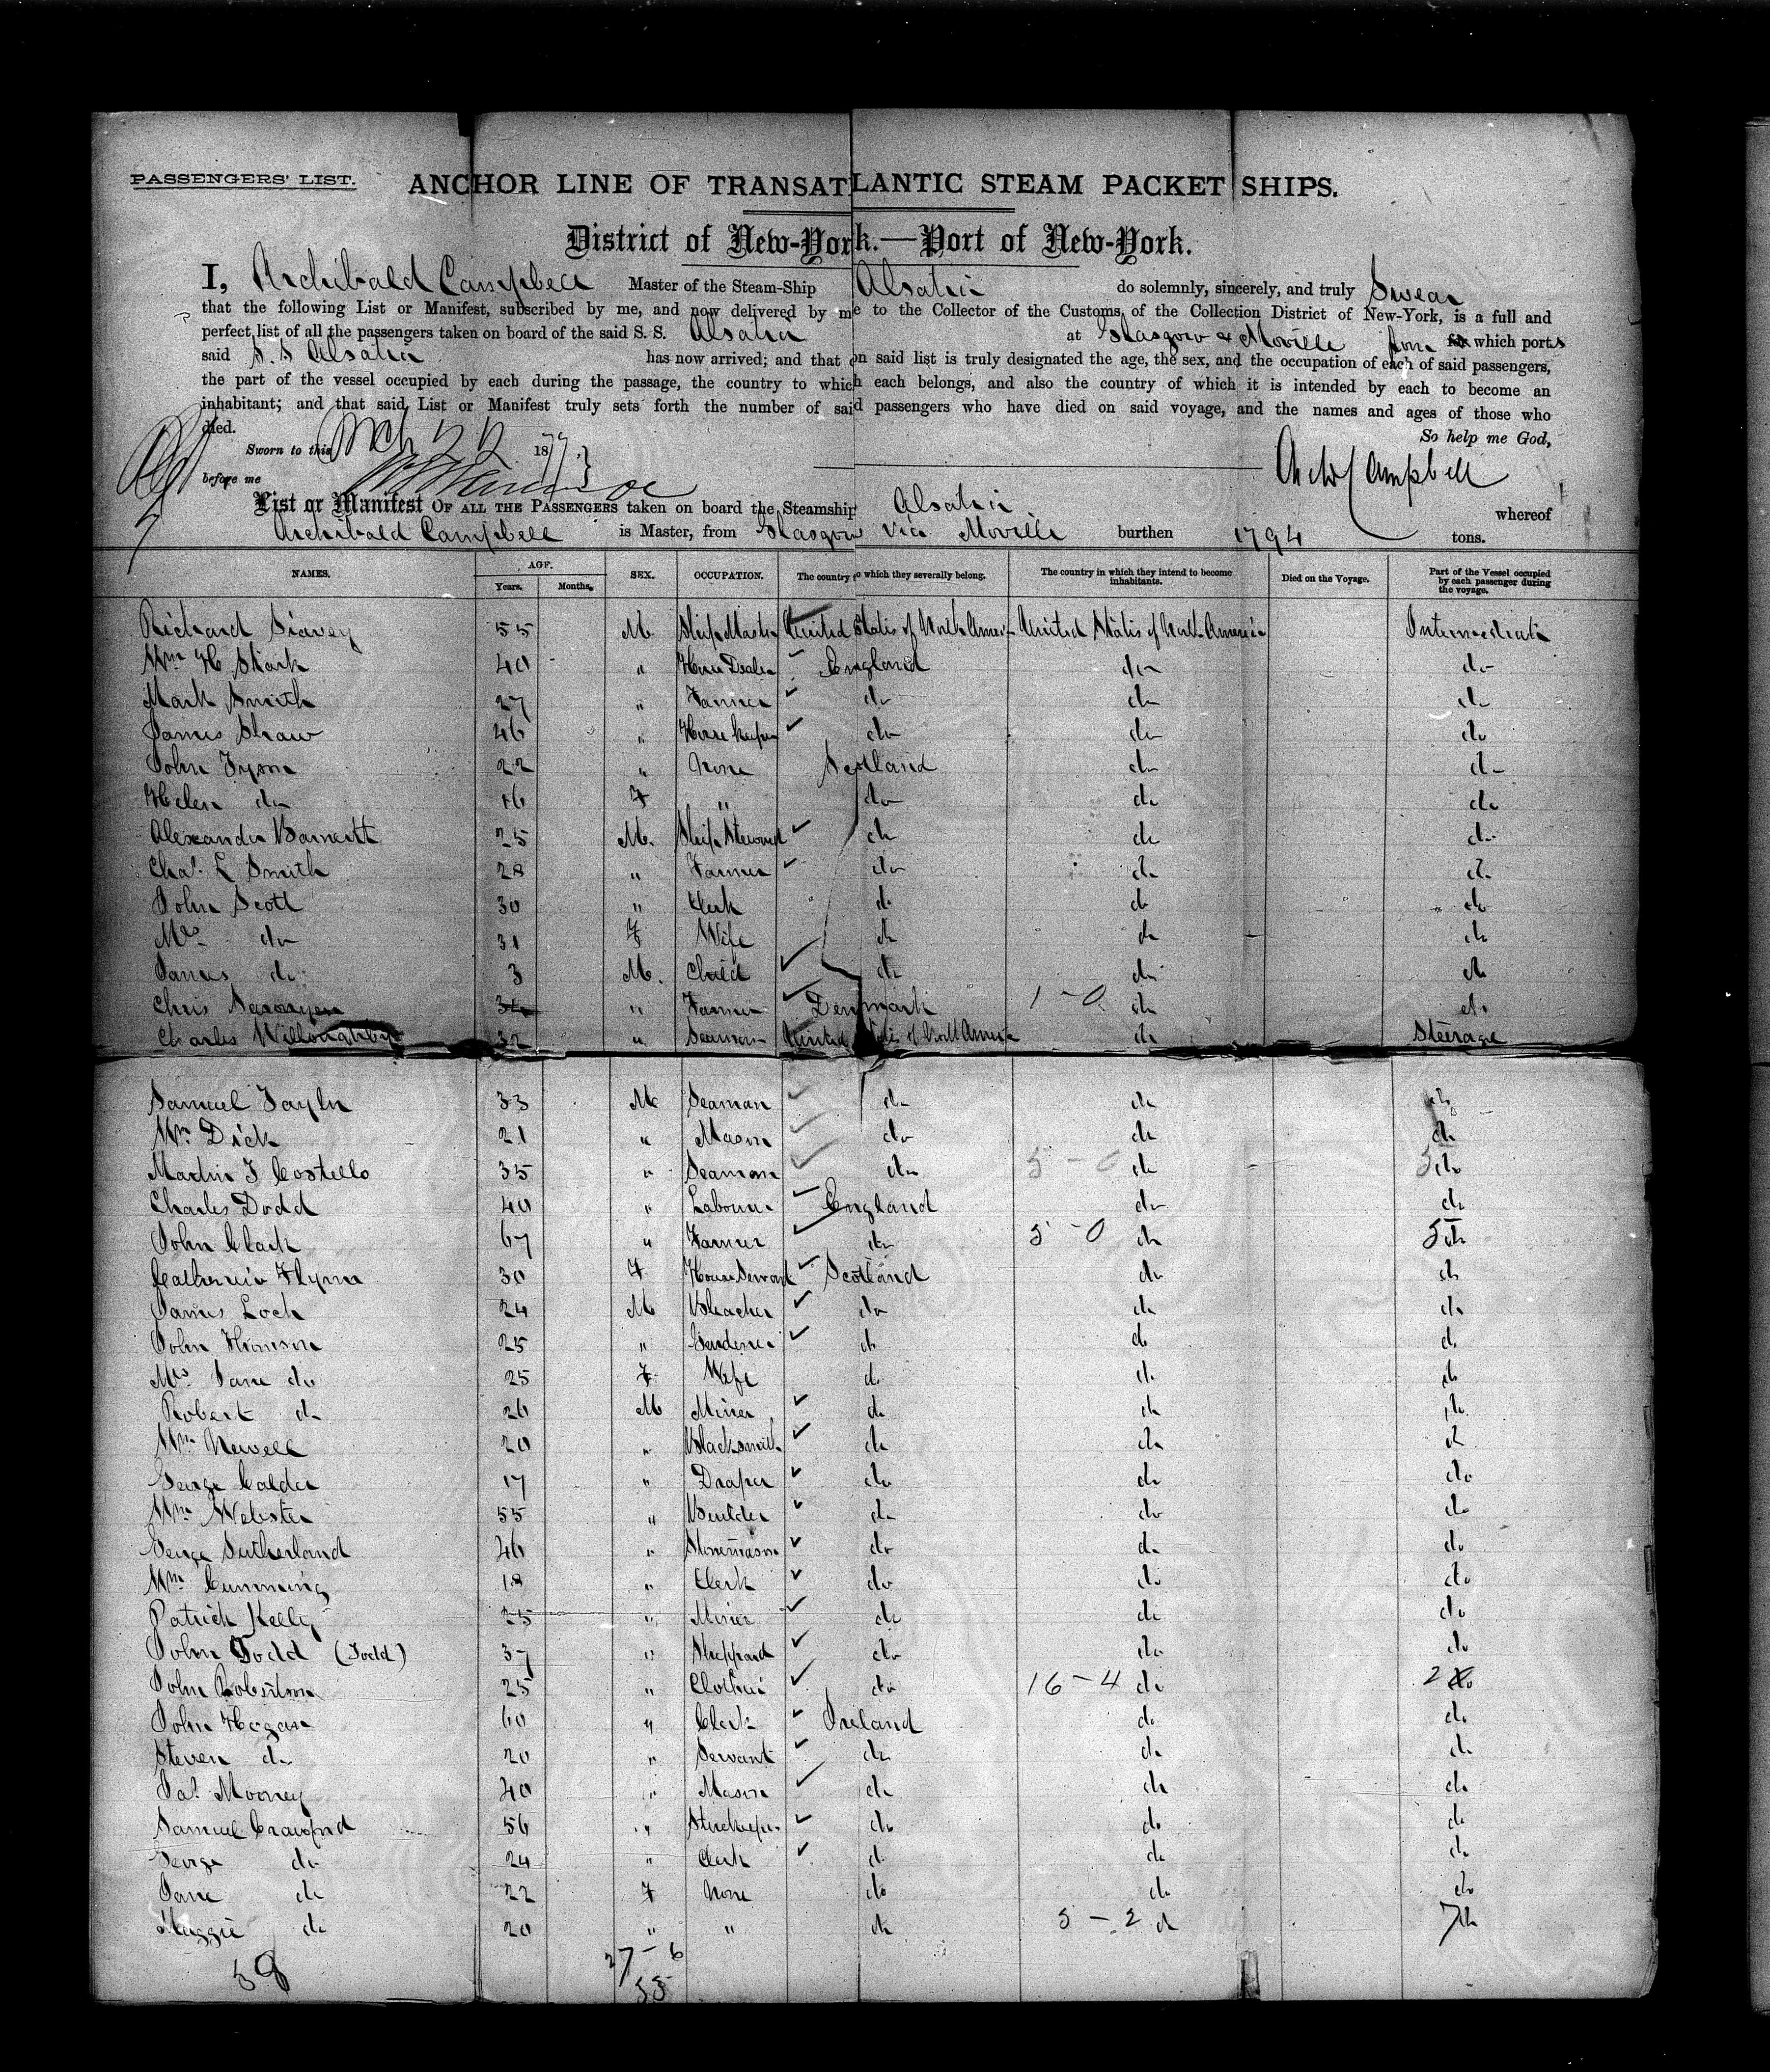 PASSENGERS' LIST.
ANCHOR LINE OF TRANSATLANTIC STEAM PACKET SHIPS.
District of New-York.—Port of New-York.
I, Archibald Campbell Master of the Steam-Ship Alsatia do solemnly, sincerely, and truly Swear
that the following List or Manifest, subscribed by me, and now delivered by me to the Collector of the Customs of the Collection District of New-York, is a full and
perfect list of all the passengers taken on board of the said S. S. Alsatia at Glasgow & Moville from which ports
said S.S Alsatia has now arrived; and that on said list is truly designated the age, the sex, and the occupation of each of said passengers,
the part of the vessel occupied by each during the passage, the country to which each belongs, and also the country of which it is intended by each to become an
inhabitant; and that said List or Manifest truly sets forth the number of said passengers who have died on said voyage, and the names and ages of those who
died.
So help me God,
Sworn to this Mch 22 1877
before me
Archd Campbell
List or Manifest OF ALL THE PASSENGERS taken on board the Steamship Alsatia whereof
Archibald Campbell is Master, from Glasgow via Moville burthen 1794 tons.
NAMES. AGE. Years. Months. SEX. OCCUPATION. The country to which they severally belong. The country in which they intend to become inhabitants. Died on the Voyage. Part of the Vessel occupied by each passenger during the voyage.
Richard 55 M. Ship Master United States of North America United States of North America Intermediate
Wm H Stark 40 " Horse Dealer England do do
Mark Smith 27 " Farmer do do do
James Shaw 46 " do do do
John 22 " None Scotland do do
Helen do 16 F " do do do
Alexander Barnett 25 M. Ship Steward do do do
Chas. L Smith 28 " Farmer do do do
John Scott 30 " Clerk do do do
Mrs do 31 F Wife do do do
James do 3 M. Child do do do
Chris " Farmer Denmark 1 - 0 do do
Charles Willoughby 32 " Seaman United States of North America do Steerage
Samuel Taylor 33 M Seaman do do do
Wm Dick 21 " Mason do do do
Martin J Costello 35 " Seaman do 5 - 0 do 5 do
Charles Dodd 40 " Labourer England do do
John Clark 67 " Farmer do 5 - 0 do 5 do
Catherine Flynn 30 F House Servant Scotland do do
James Loch 24 M Bleacher do do do
John Thomson 25 " Gardener do do do
Mrs Jane do 25 F Wife do do do
Robert do 26 M Miner do do do
Wm Newell 20 " Blacksmith do do do
George Calder 17 " Draper do do do
Wm Webster 55 " Builder do do do
George Sutherland 46 " Stonemason do do do
Wm Cumming 18 " Clerk do do do
Patrick Kelly 25 " Miner do do do
John Todd (Todd) 37 " Sheppard do do do
John Robertson 25 " Clothier do 16 - 4 do 2 do
John Hogan 60 " Clerk Ireland do do
Steven do 20 " Servant do do do
Jas. Mooney 40 " Mason do do do
Samuel Crawford 56 " Storekeeper do do do
George do 24 " Clerk do do do
Jane do 22 F None do do do
Maggie do 20 " " do 5 - 2 do 7 do
38 27 - 6